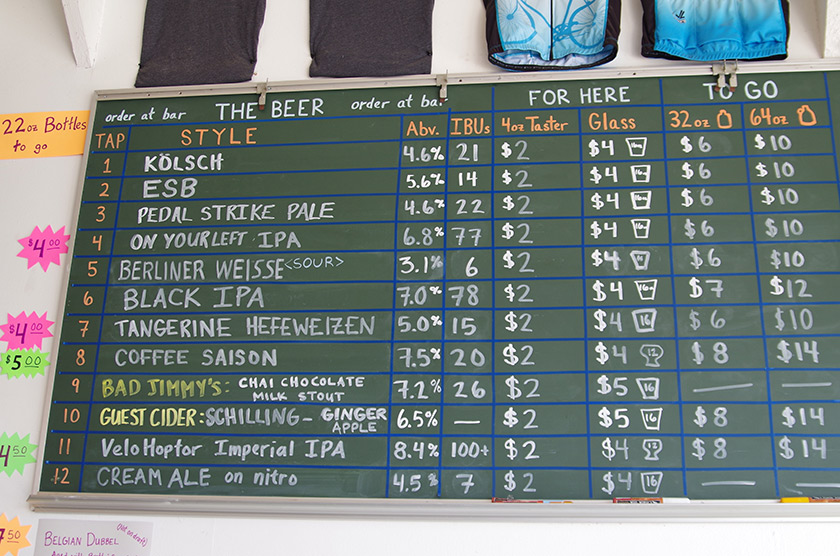 order at bar THE BEER order at bar FOR HERE TO GO
TAP STYLE Abv. IBUs 4oz Taster Glass 32oz 64oz
1 KÖLSCH 4.6% 21 $2 $4 16oz $6 $10
2 ESB 5.6% 14 $2 $4 16oz $6 $10
3 PEDAL STRIKE PALE 4.6% 22 $2 $4 16oz $6 $10
4 ON YOUR LEFT IPA 6.8% 77 $2 $4 16oz $6 $10
5 BERLINER WEISSE <SOUR> 3.1% 6 $2 $4 $6 $10
6 BLACK IPA 7.0% 78 $2 $4 16oz $7 $12
7 TANGERINE HEFEWEIZEN 5.0% 15 $2 $4 16 $6 $10
8 COFFEE SAISON 7.5% 20 $2 $4 12 $8 $14
9 BAD JIMMY'S: CHAI CHOCOLATE MILK STOUT 7.2% 26 $2 $5 16 — —
10 GUEST CIDER: SCHILLING - GINGER APPLE 6.5% — $2 $5 16 $8 $14
11 VeloHopfor Imperial IPA 8.4% 100+ $2 $4 12 $8 $14
12 CREAM ALE on nitro 4.5% 7 $2 $4 16 — —
22oz Bottles
to go
$4.00
$4.00
$5.00
4.50
7.50
BELGIAN DUBBEL